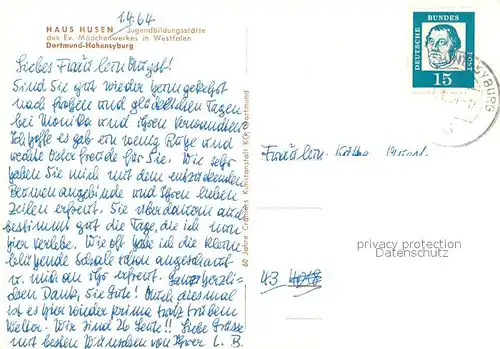 1.4.64
HAUS HUSEN Jugendbildungsstätte
des Ev. Mädchenwerkes in Westfalen
Dortmund-Hohensyburg
Liebes Fräulein
Sind Sie gut wieder heimgekehrt
nach frohen und glücklichen Tagen
bei Monika und Ihren Verwandten
Ich hoffe es gab ein wenig Ruhe und
rechte Osterfreude für Sie. Wie sehr
haben Sie mich mit dem entzückenden
Blumenangebinde und Ihren lieben
Zeilen erfreut. Sie überdauern auch
bestimmt gut die Tage, die ich nun
hier verlebe. Wie oft habe ich die kleine
blühende Schale schon angeschaut
u. mich an ihr erfreut. Ganz herzli-
chen Dank, Sie Gute! Auch diesmal
ist es hier wieder prima trotz trübem
Wetter. Wir sind 26 Leute!! Liebe Grüsse
mit besten Wünschen von Ihrer L. B.
60 Jahre Cramers Kunstanstalt KG, Dortmund
DEUTSCHE BUNDESPOST
15
Fräulein
privacy protection
Datenschutz
43